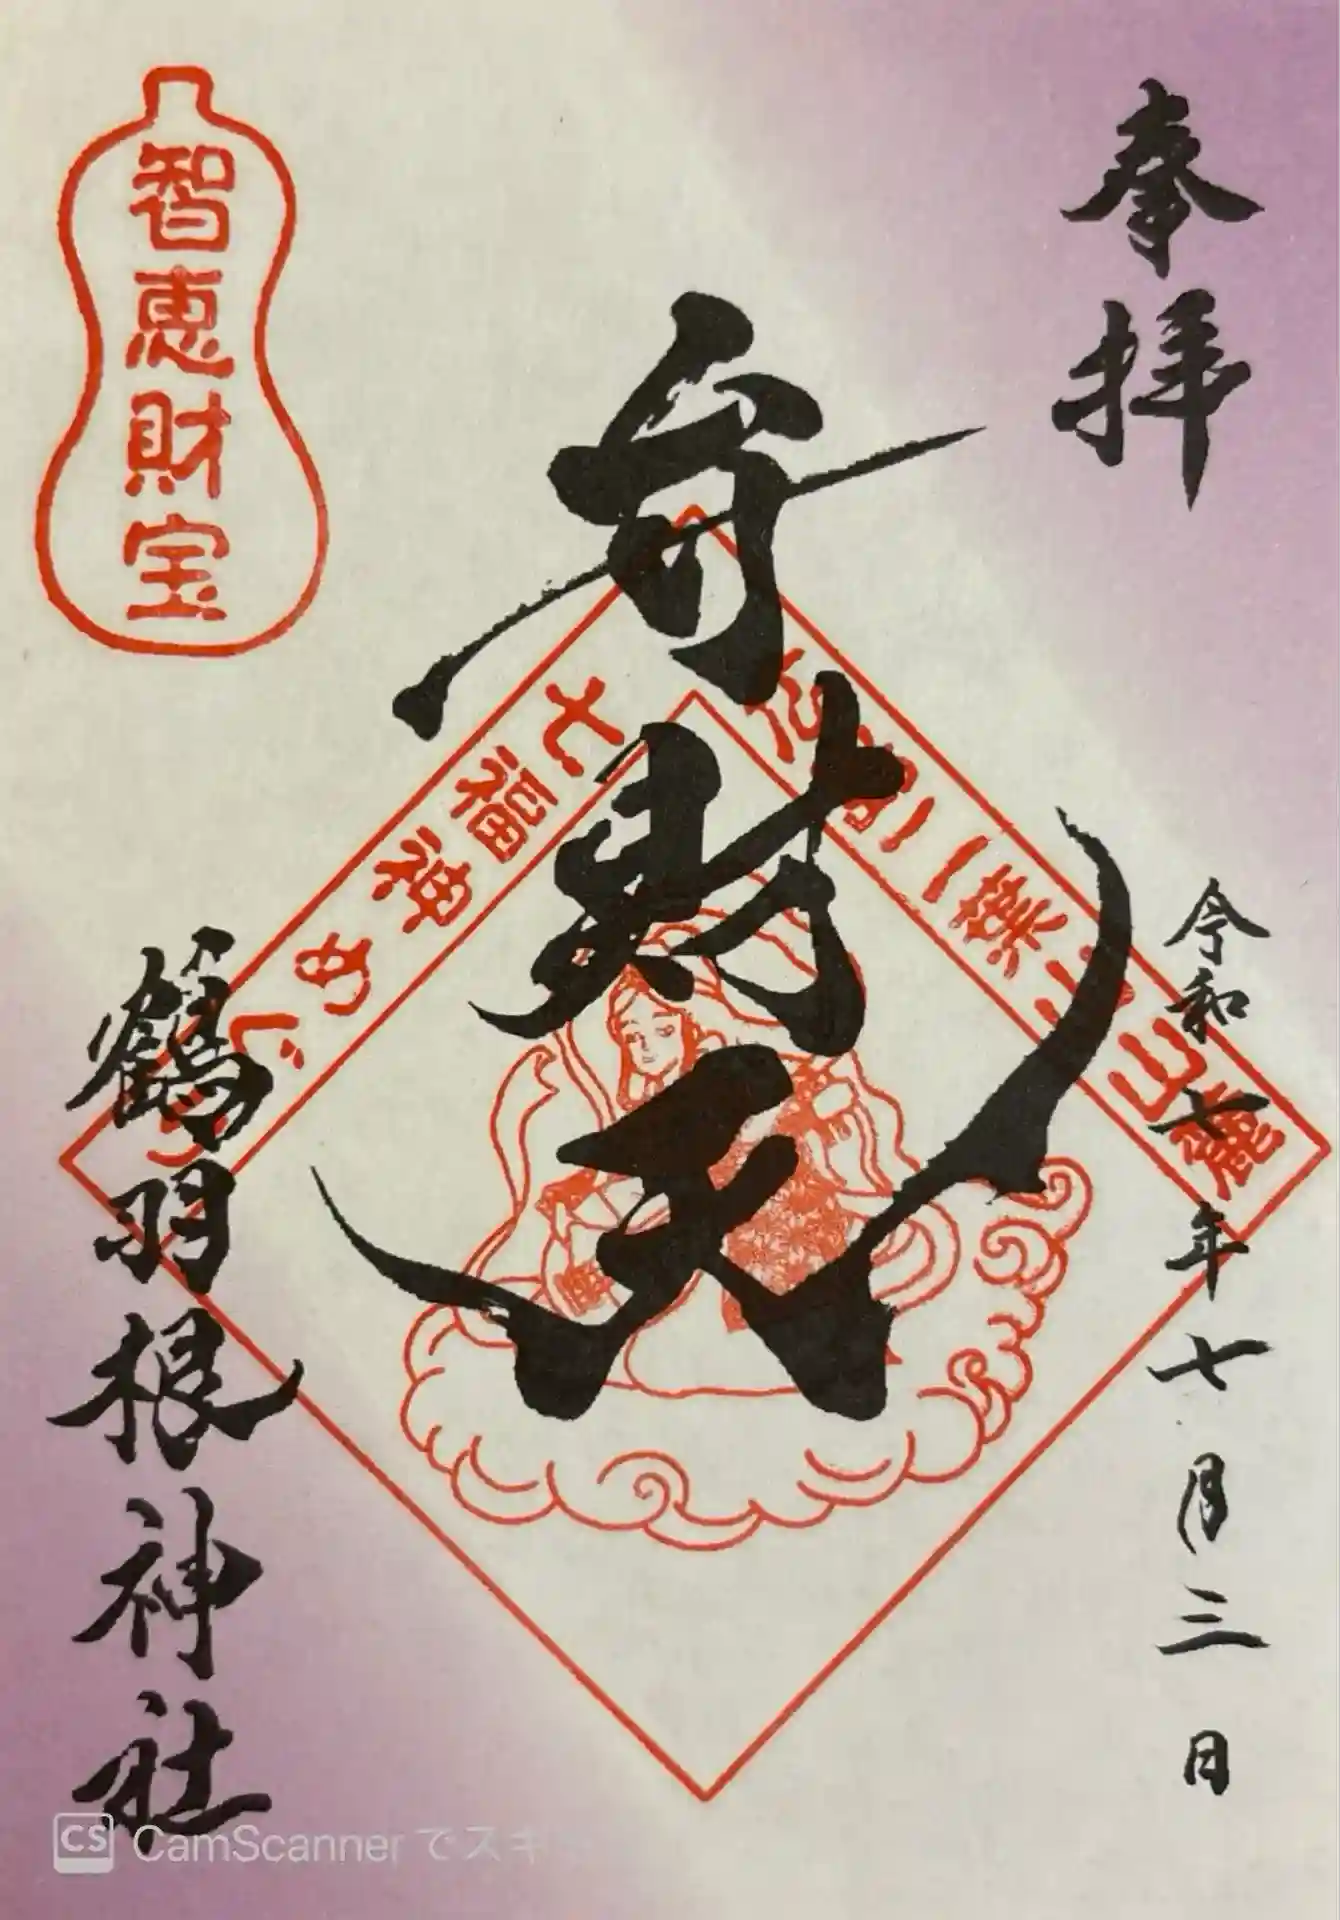 奉拝
令和七年七月三日
弁財天
七福神めぐり
鶴羽根神社
智恵財宝
CS CamScanner でスキ